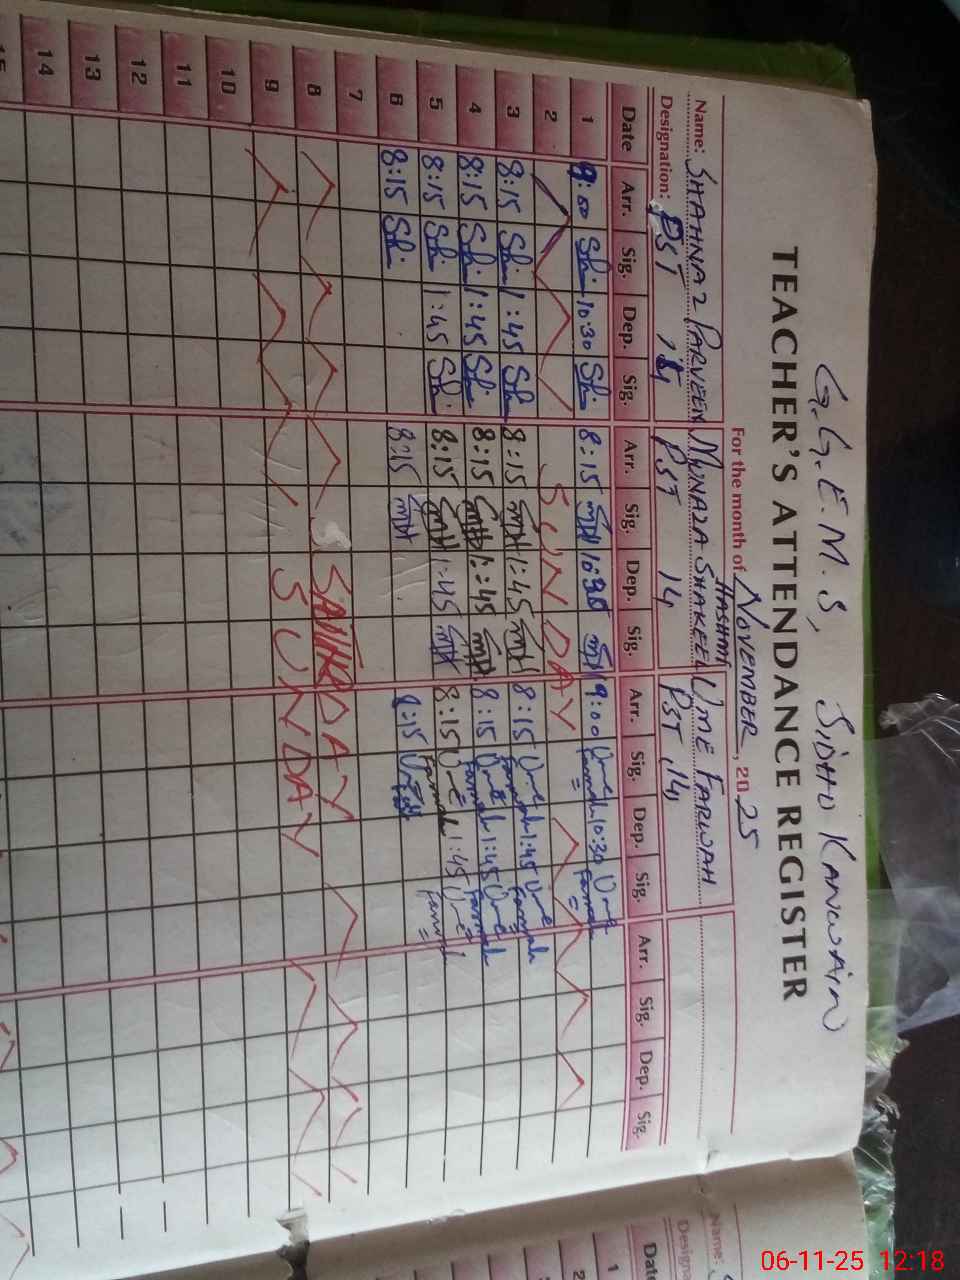 G.G.E.M.S, SIDHO KANWAIN
TEACHER'S ATTENDANCE REGISTER
For the month of NOVEMBER, 2025
Name: SHAHNAZ PARVEEN MUNAZA SHAKEEL HASHMI UME FARWAH
Designation: PST 14 PST 14 PST 14
Date Arr. Sig. Dep. Sig. Arr. Sig. Dep. Sig. Arr. Sig. Dep. Sig. Arr. Sig. Dep. Sig.
1 9:00 Sh 10:30 Sh 8:15 MH 10:30 MH 9:00 Ume Farwah 10:30 Ume Farwah
2 SUNDAY
3 8:15 Sh 1:45 Sh 8:15 MH 1:45 MH 8:15 Ume Farwah 1:45 Ume Farwah
4 8:15 Sh 1:45 Sh 8:15 MH 1:45 MH 8:15 Ume Farwah 1:45 Ume Farwah
5 8:15 Sh 1:45 Sh 8:15 MH 1:45 MH 8:15 Ume Farwah 1:45 Ume Farwah
6 8:15 Sh 8:15 MH 8:15 Ume
7
8 SATURDAY
9 SUNDAY
10
11
12
13
14
15
Name:
Designa
Date
1
2
3
4
5
06-11-25 12:18